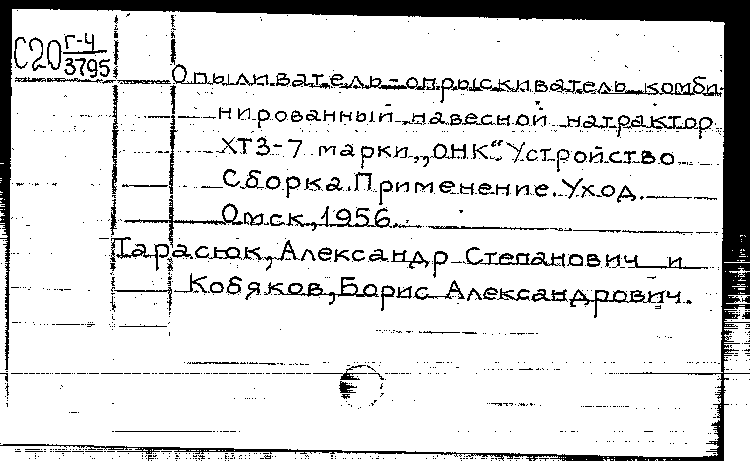 С20 Г-4
3795
Опыливатель-опрыскиватель комби-
нированный навесной на трактор
ХТЗ-7 марки „ОНК“. Устройство
Сборка. Применение. Уход.
Омск, 1956.
Тарасюк, Александр Степанович и
Кобяков, Борис Александрович.